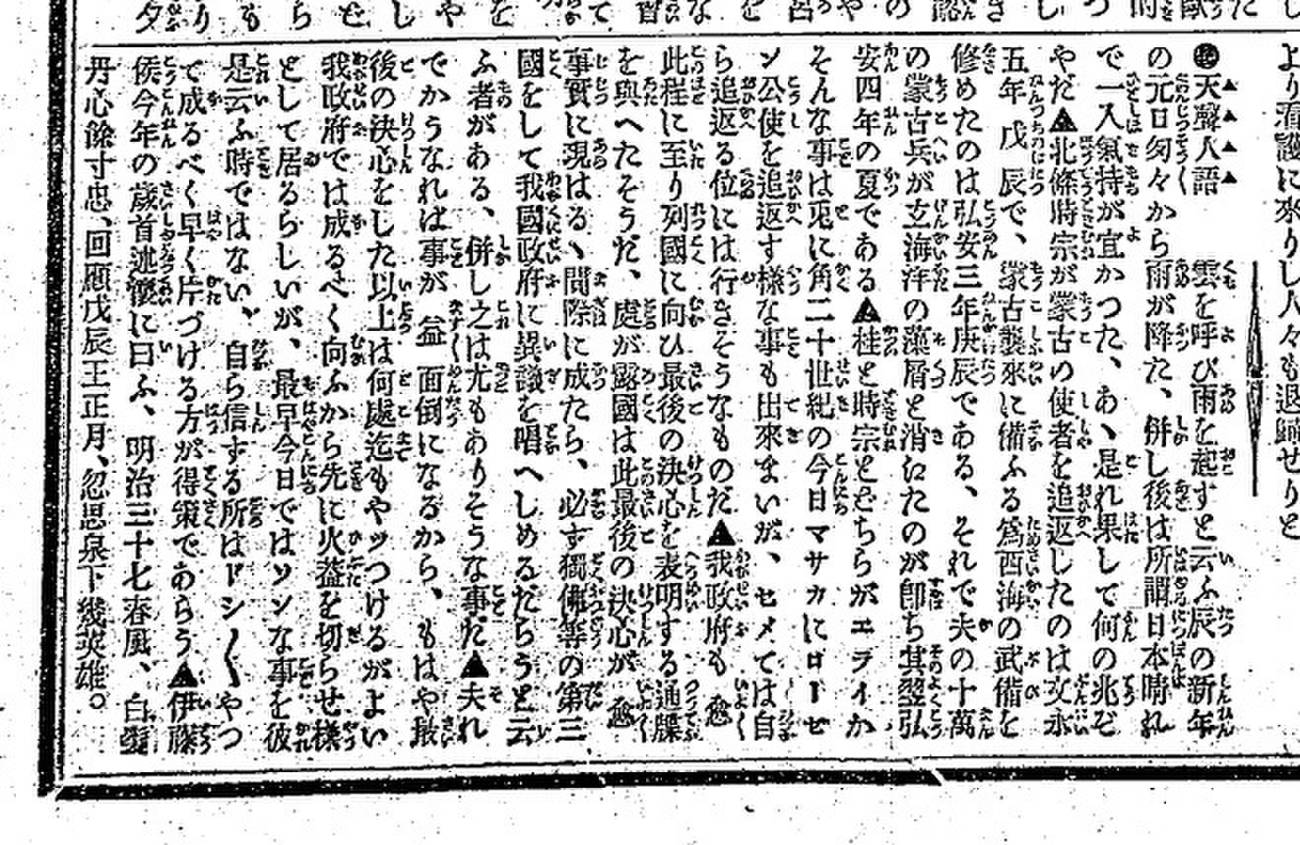 より看護に來りし人々も退歸せりと
●天聲人語　雲を呼び雨を起すと云ふ辰の新年
の元日匆々から雨が降た、併し後は所謂日本晴れ
で一入氣持が宜かつた、あゝ是れ果して何の兆ぞ
やだ▲北條時宗が蒙古の使者を追返したのは文永
五年戊辰で、蒙古襲來に備ふる爲西海の武備を
修めたのは弘安三年庚辰である、それで夫の十萬
の蒙古兵が玄海洋の藻屑と消江たのが卽ち其翌弘
安四年の夏である▲桂と時宗とどちらがエライか
そんな事は兎に角二十世紀の今日マサカにローゼ
ン公使を追返す樣な事も出來まいが、セメては自
ら追返る位には行きそうなものだ▲我政府も愈
此程に至り列國に向ひ最後の決心を表明する通牒
を與へたそうだ、處が露國は此最後の決心が愈
事實に現はるゝ間際に成たら、必ず獨佛等の第三
國をして我國政府に異議を唱へしめるだらうと云
ふ者がある、併し之は尤もありそうな事だ▲夫れ
でかうなれば事が益面倒になるから、もはや最
後の決心をした以上は何處迄もやッつけるがよい
我政府では成るべく向ふから先に火蓋を切らせ樣
として居るらしいが、最早今日ではソンな事を彼
是云ふ時ではない、自ら信ずる所はドシ〱やつ
て成るべく早く片づける方が得策であらう▲伊藤
侯今年の歳首述懷に曰ふ、明治三十七春風、白髮
丹心餘寸忠、回應戊辰王正月、忽思泉下幾英雄。